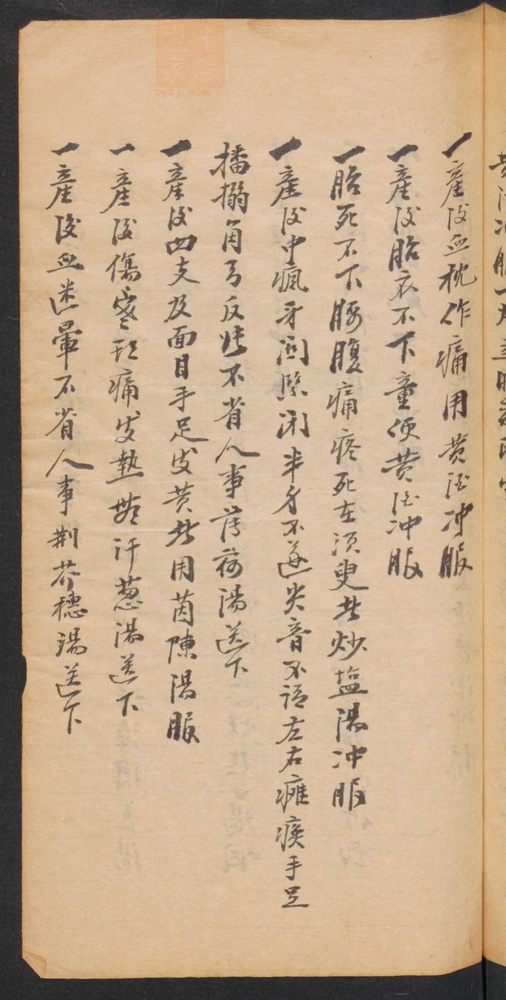 一產後血枕作痛用黄酒冲服
一產後胎衣不下童便黄酒冲服
一胎死不下腰腹痛疼死在須臾者炒塩湯冲服
一產後中瘋牙関緊闭半身不遂失音不語左右癱瘓手足
搐搦角弓反張不省人事薄荷湯送下
一產後四支及面目手足发黄者用茵陳湯服
一產後傷寒頭痛发热無汗葱湯送下
一產後血迷暈不省人事荆芥穗湯送下